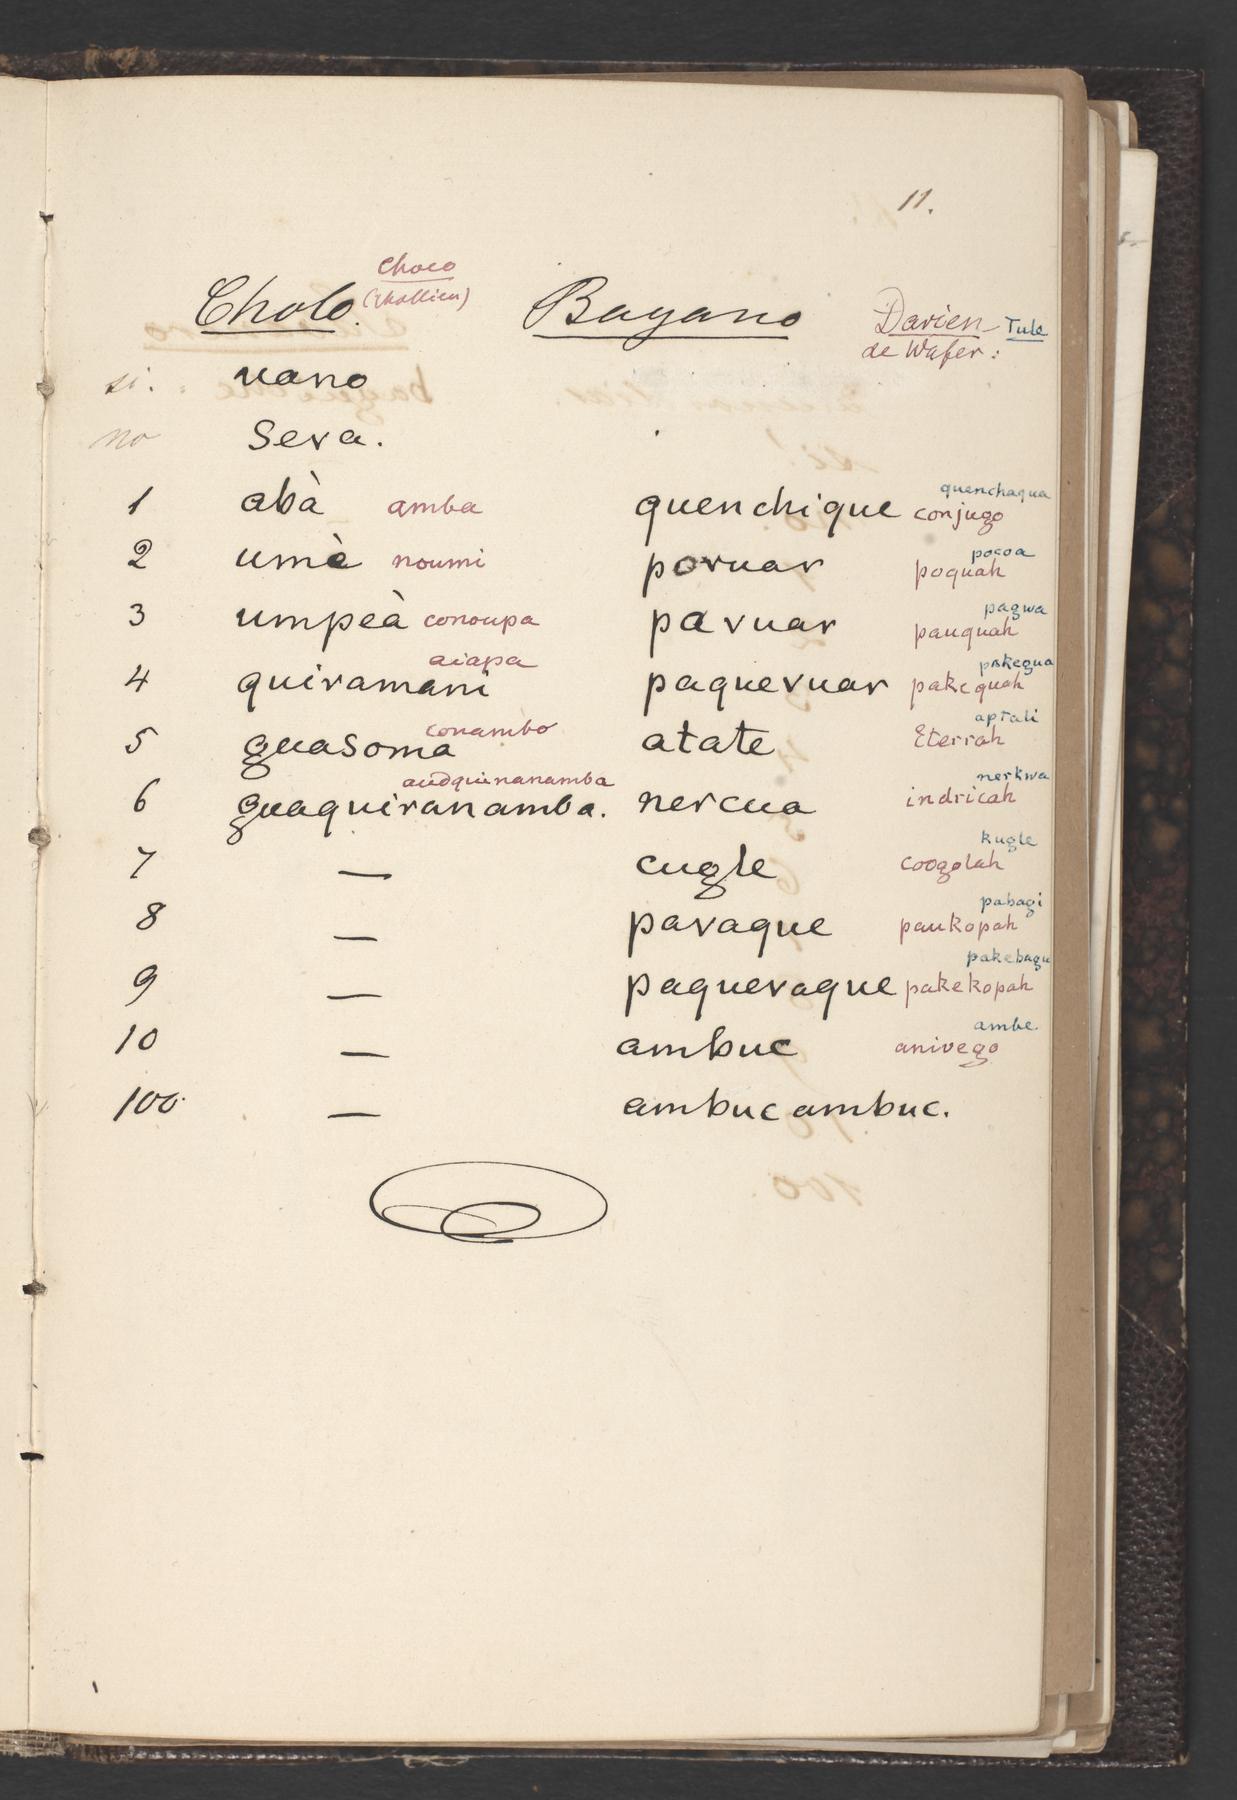 11.
Cholo. Choco Bayano Darien Tule
de Wafer:
si. vano
no seva.
1 abà amba quenchique conjugo quenchaqua
2 umà noumi poruar poquah pocoa
3 umpeà conoupa pavuar pauquah pagwa
4 quiramani aiapa paquevuar pakequah pakegua
5 guasoma conambo atate Eterrah aptali
6 guaquiranamba. nercua indricah nerkwa
7 — cugle coogolah kugle
8 — pavaque paukopah pabagi
9 — paquevaque pakekopah pakebagu
10 — ambuc anivego ambe.
100 — ambuc ambuc.